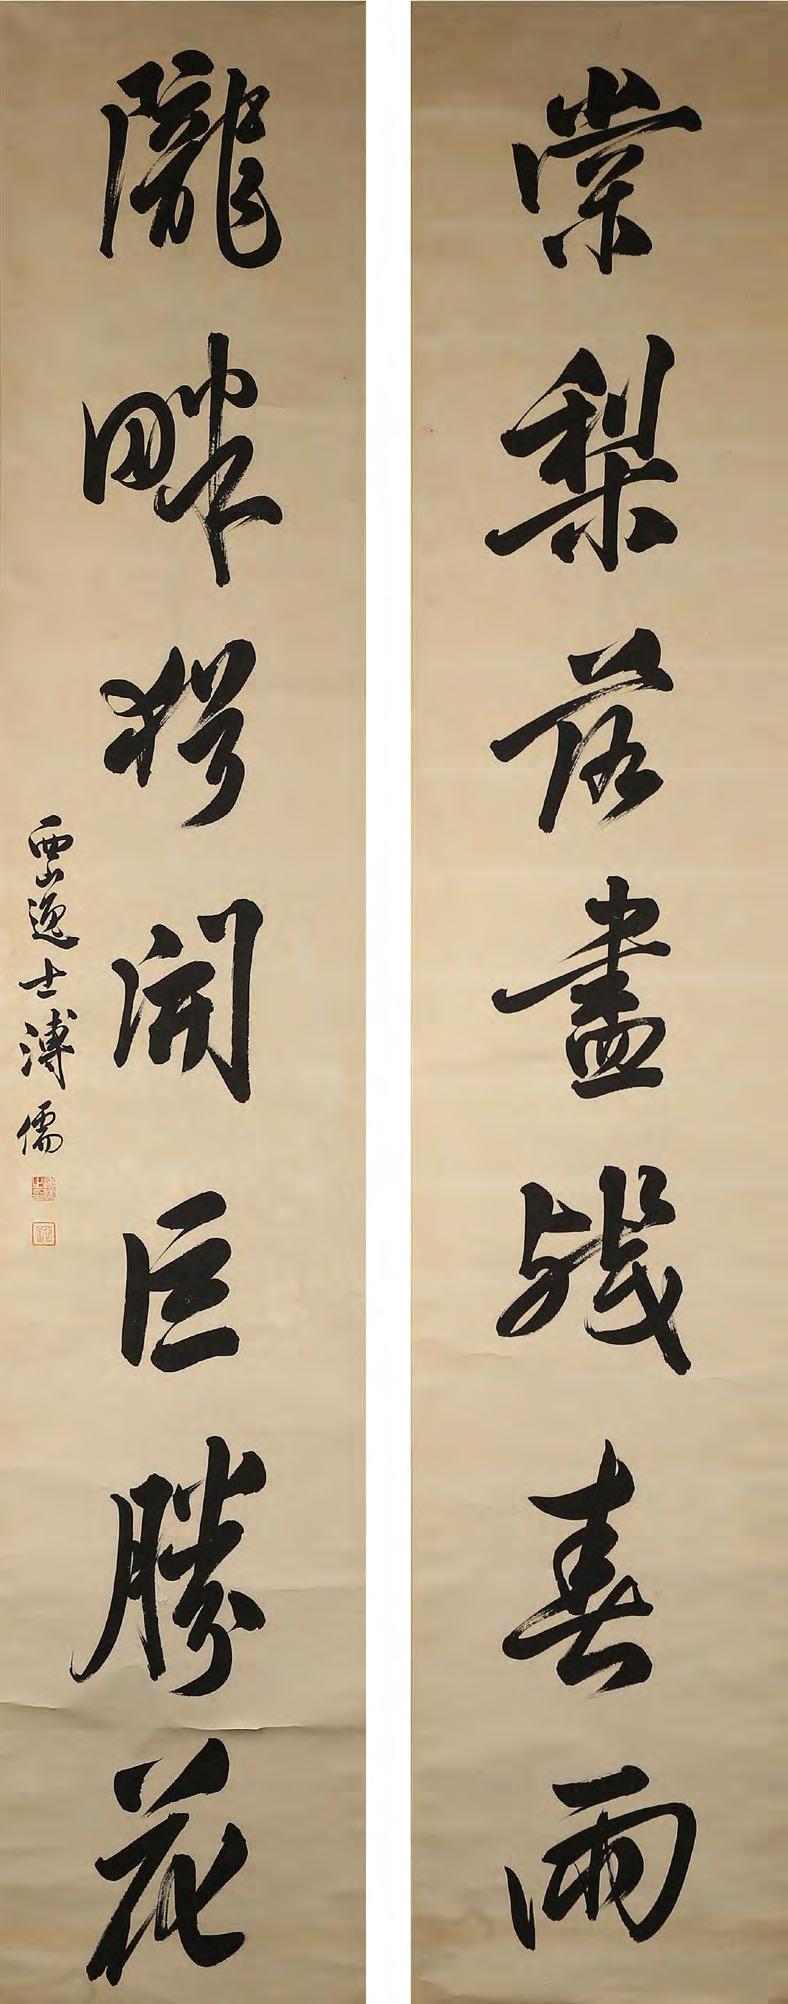 棠梨落盡殘春雨
隴畔猶開巨勝花
西山逸士溥儒